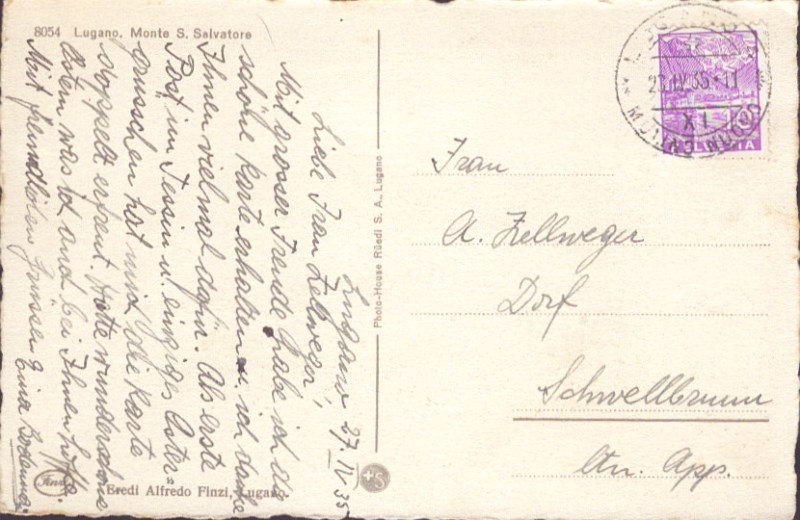 8054 Lugano. Monte S. Salvatore
Lugano 27. IV 35
Liebe Frau Zellweger!
Mit grosser Freude habe ich die
schöne Karte erhalten u. ich danke
Ihnen vielmal dafür. Als erste
Post im Tessin u. einziges Oster-
grüsschen hat mich die Karte
doppelt erfreut. Hatte wunderschöne
Ostern was ich auch bei Ihnen hoffe.
Mit freundlichen Grüssen
Eredi Alfredo Finzi, Lugano
Photo-House Rüedi S. A., Lugano
HELVETIA
Frau
A. Zellweger
Dorf
Schwellbrunn
Ktn. App.